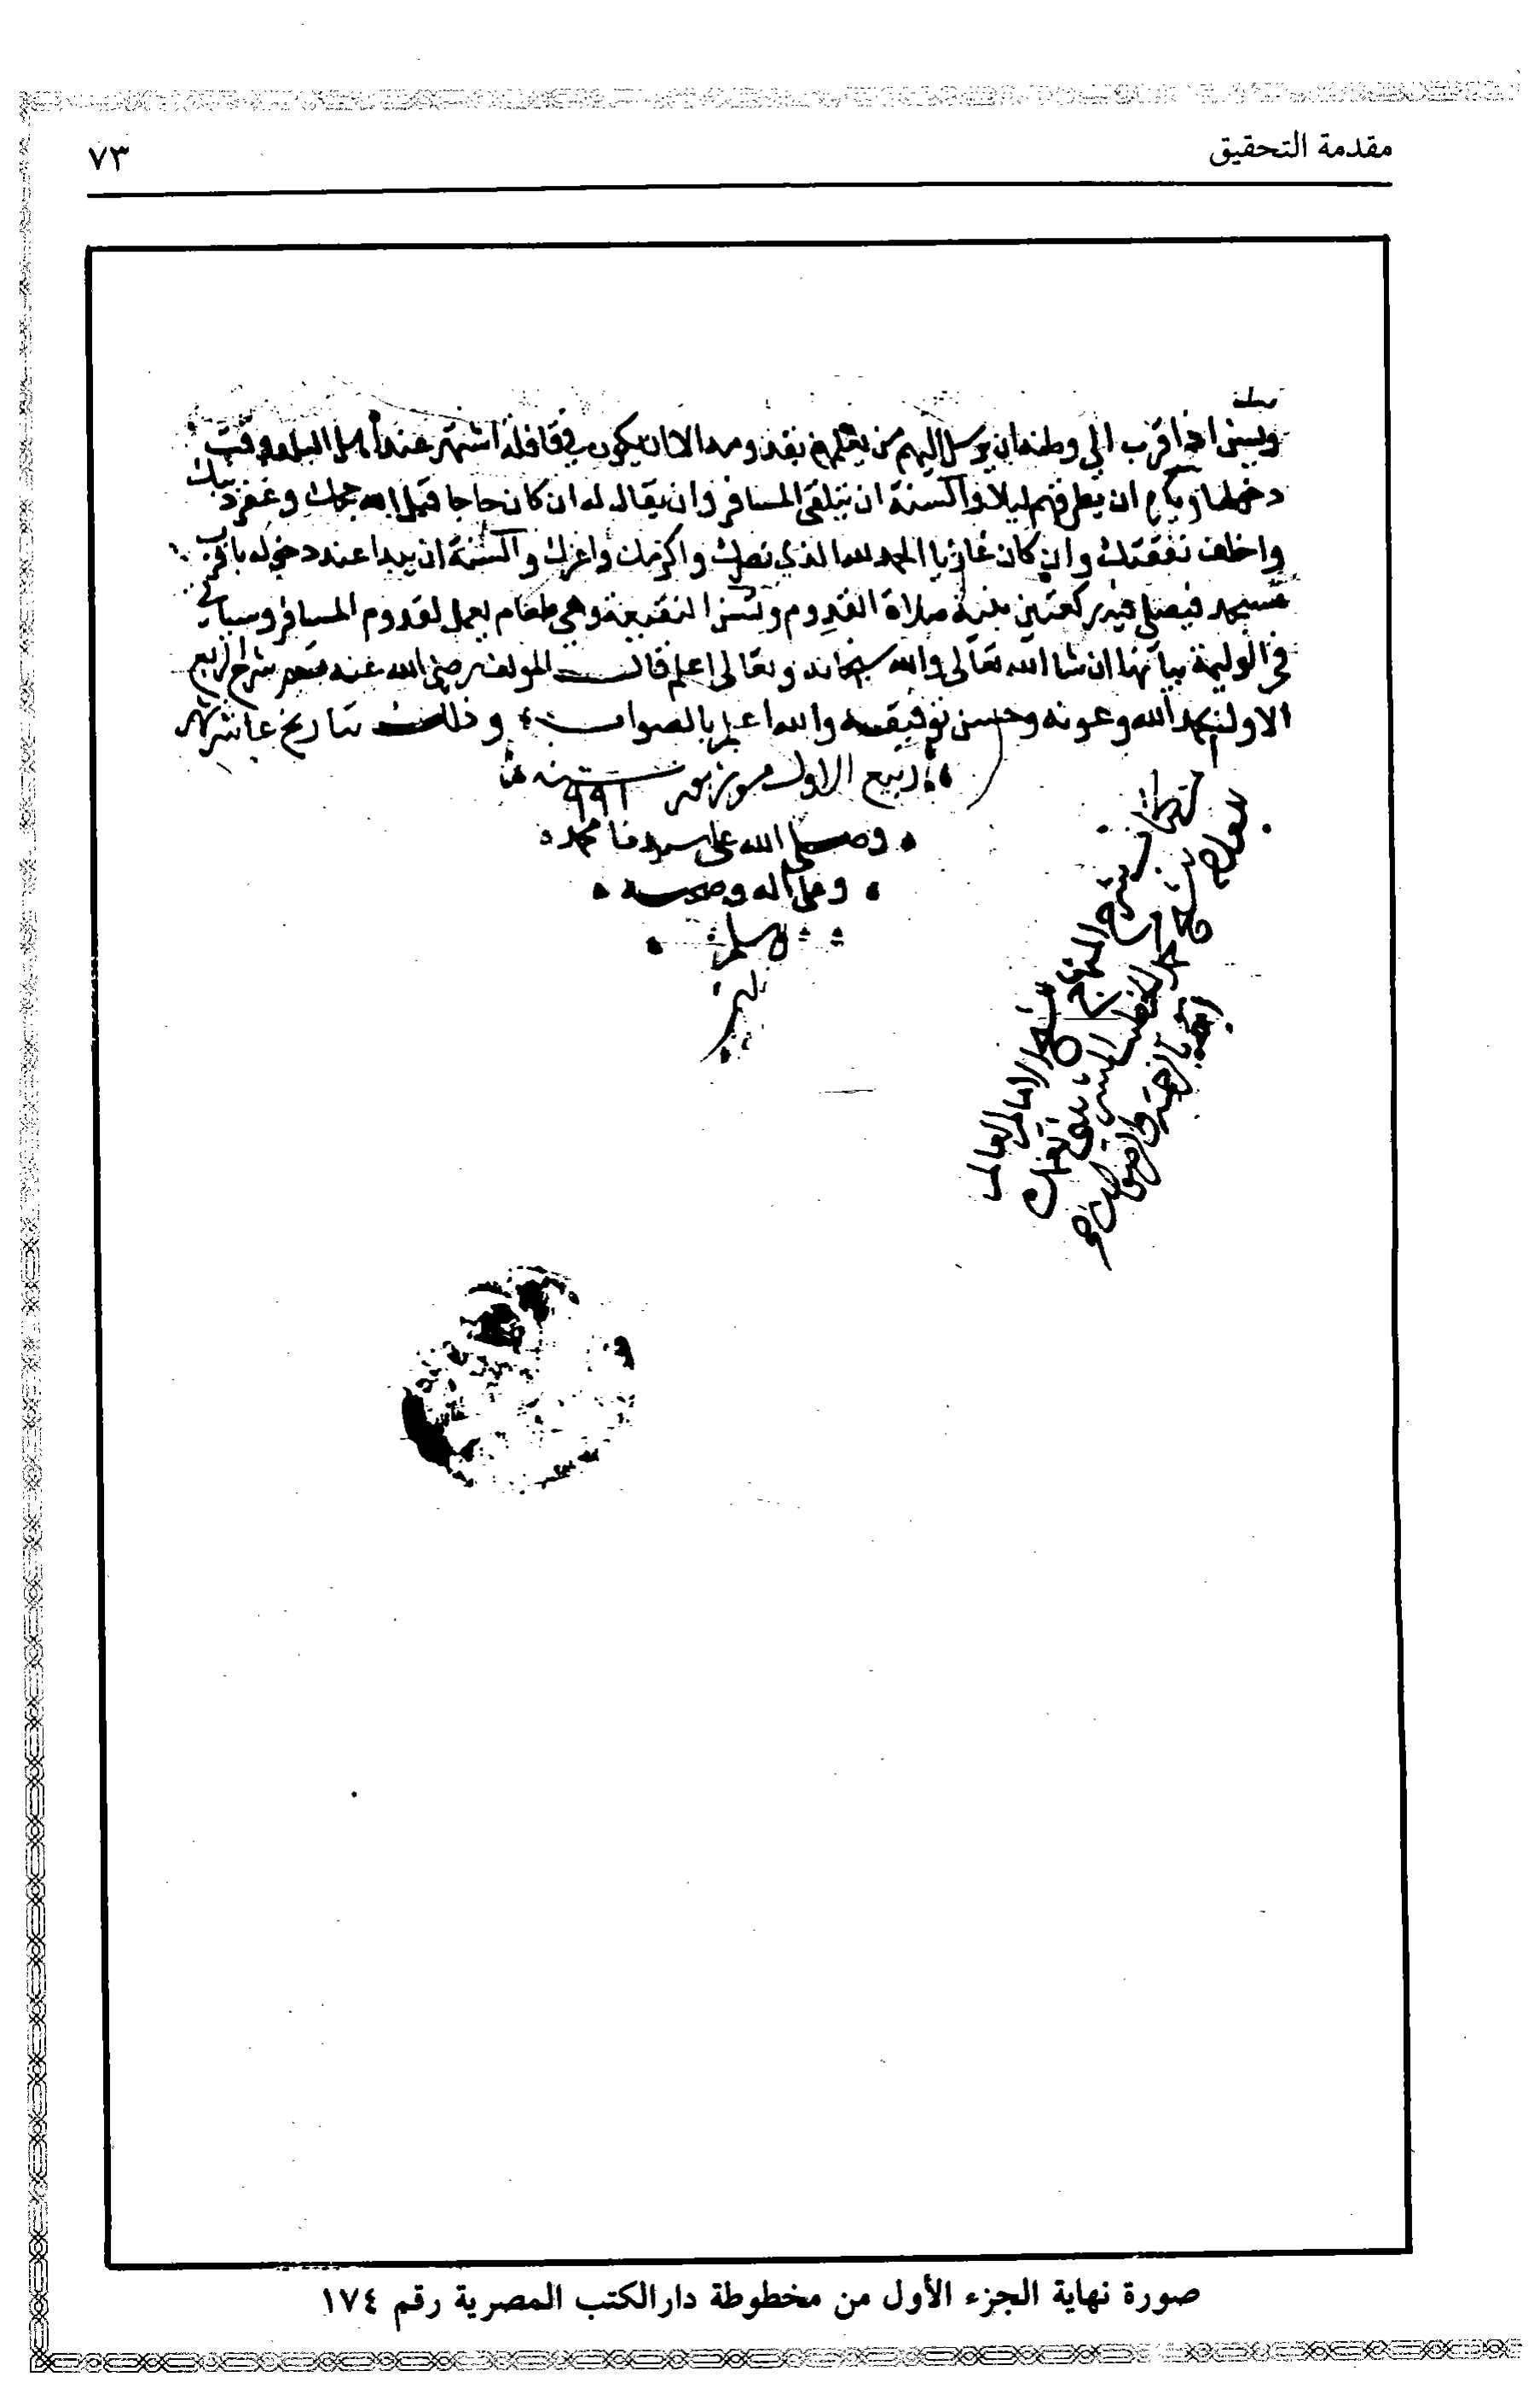 مقدمة التحقيق
٧٣
ويسن اذا قرب الى وطنه ان يرسل اليهم من يعلمهم بقدومه الا ان يكون في قافلة اشتهر عند اهل البلد وقت
دخولها ويكره ان يطرقهم ليلا والسنة ان يتلقى المسافر وان يقال له ان كان حاجا قبل الله حجك وغفر ذنبك
واخلف نفقتك وان كان غازيا الحمد لله الذي نصرك واكرمك واعزك والسنة ان يبدا عند دخوله باقرب
مسجد فيصلي فيه ركعتين بنية صلاة القدوم وتسن النقيعة وهي طعام يعمل لقدوم المسافر وسياتي
في الوليمة بيانها ان شا الله تعالى والله سبحانه وتعالى اعلم قال المولف رضي الله عنه شرح الربع
الاول بحمد الله وعونه وحسن توفيقه والله اعلم بالصواب وذلك بتاريخ عاشر شهر
ربيع الاول سنة ٩٩١
وصلى الله على سيدنا محمد
وعلى اله وصحبه
وسلم
شرح المنهاج الامام العالم
الخطيب الشربيني
صورة نهاية الجزء الأول من مخطوطة دار الكتب المصرية رقم ١٧٤